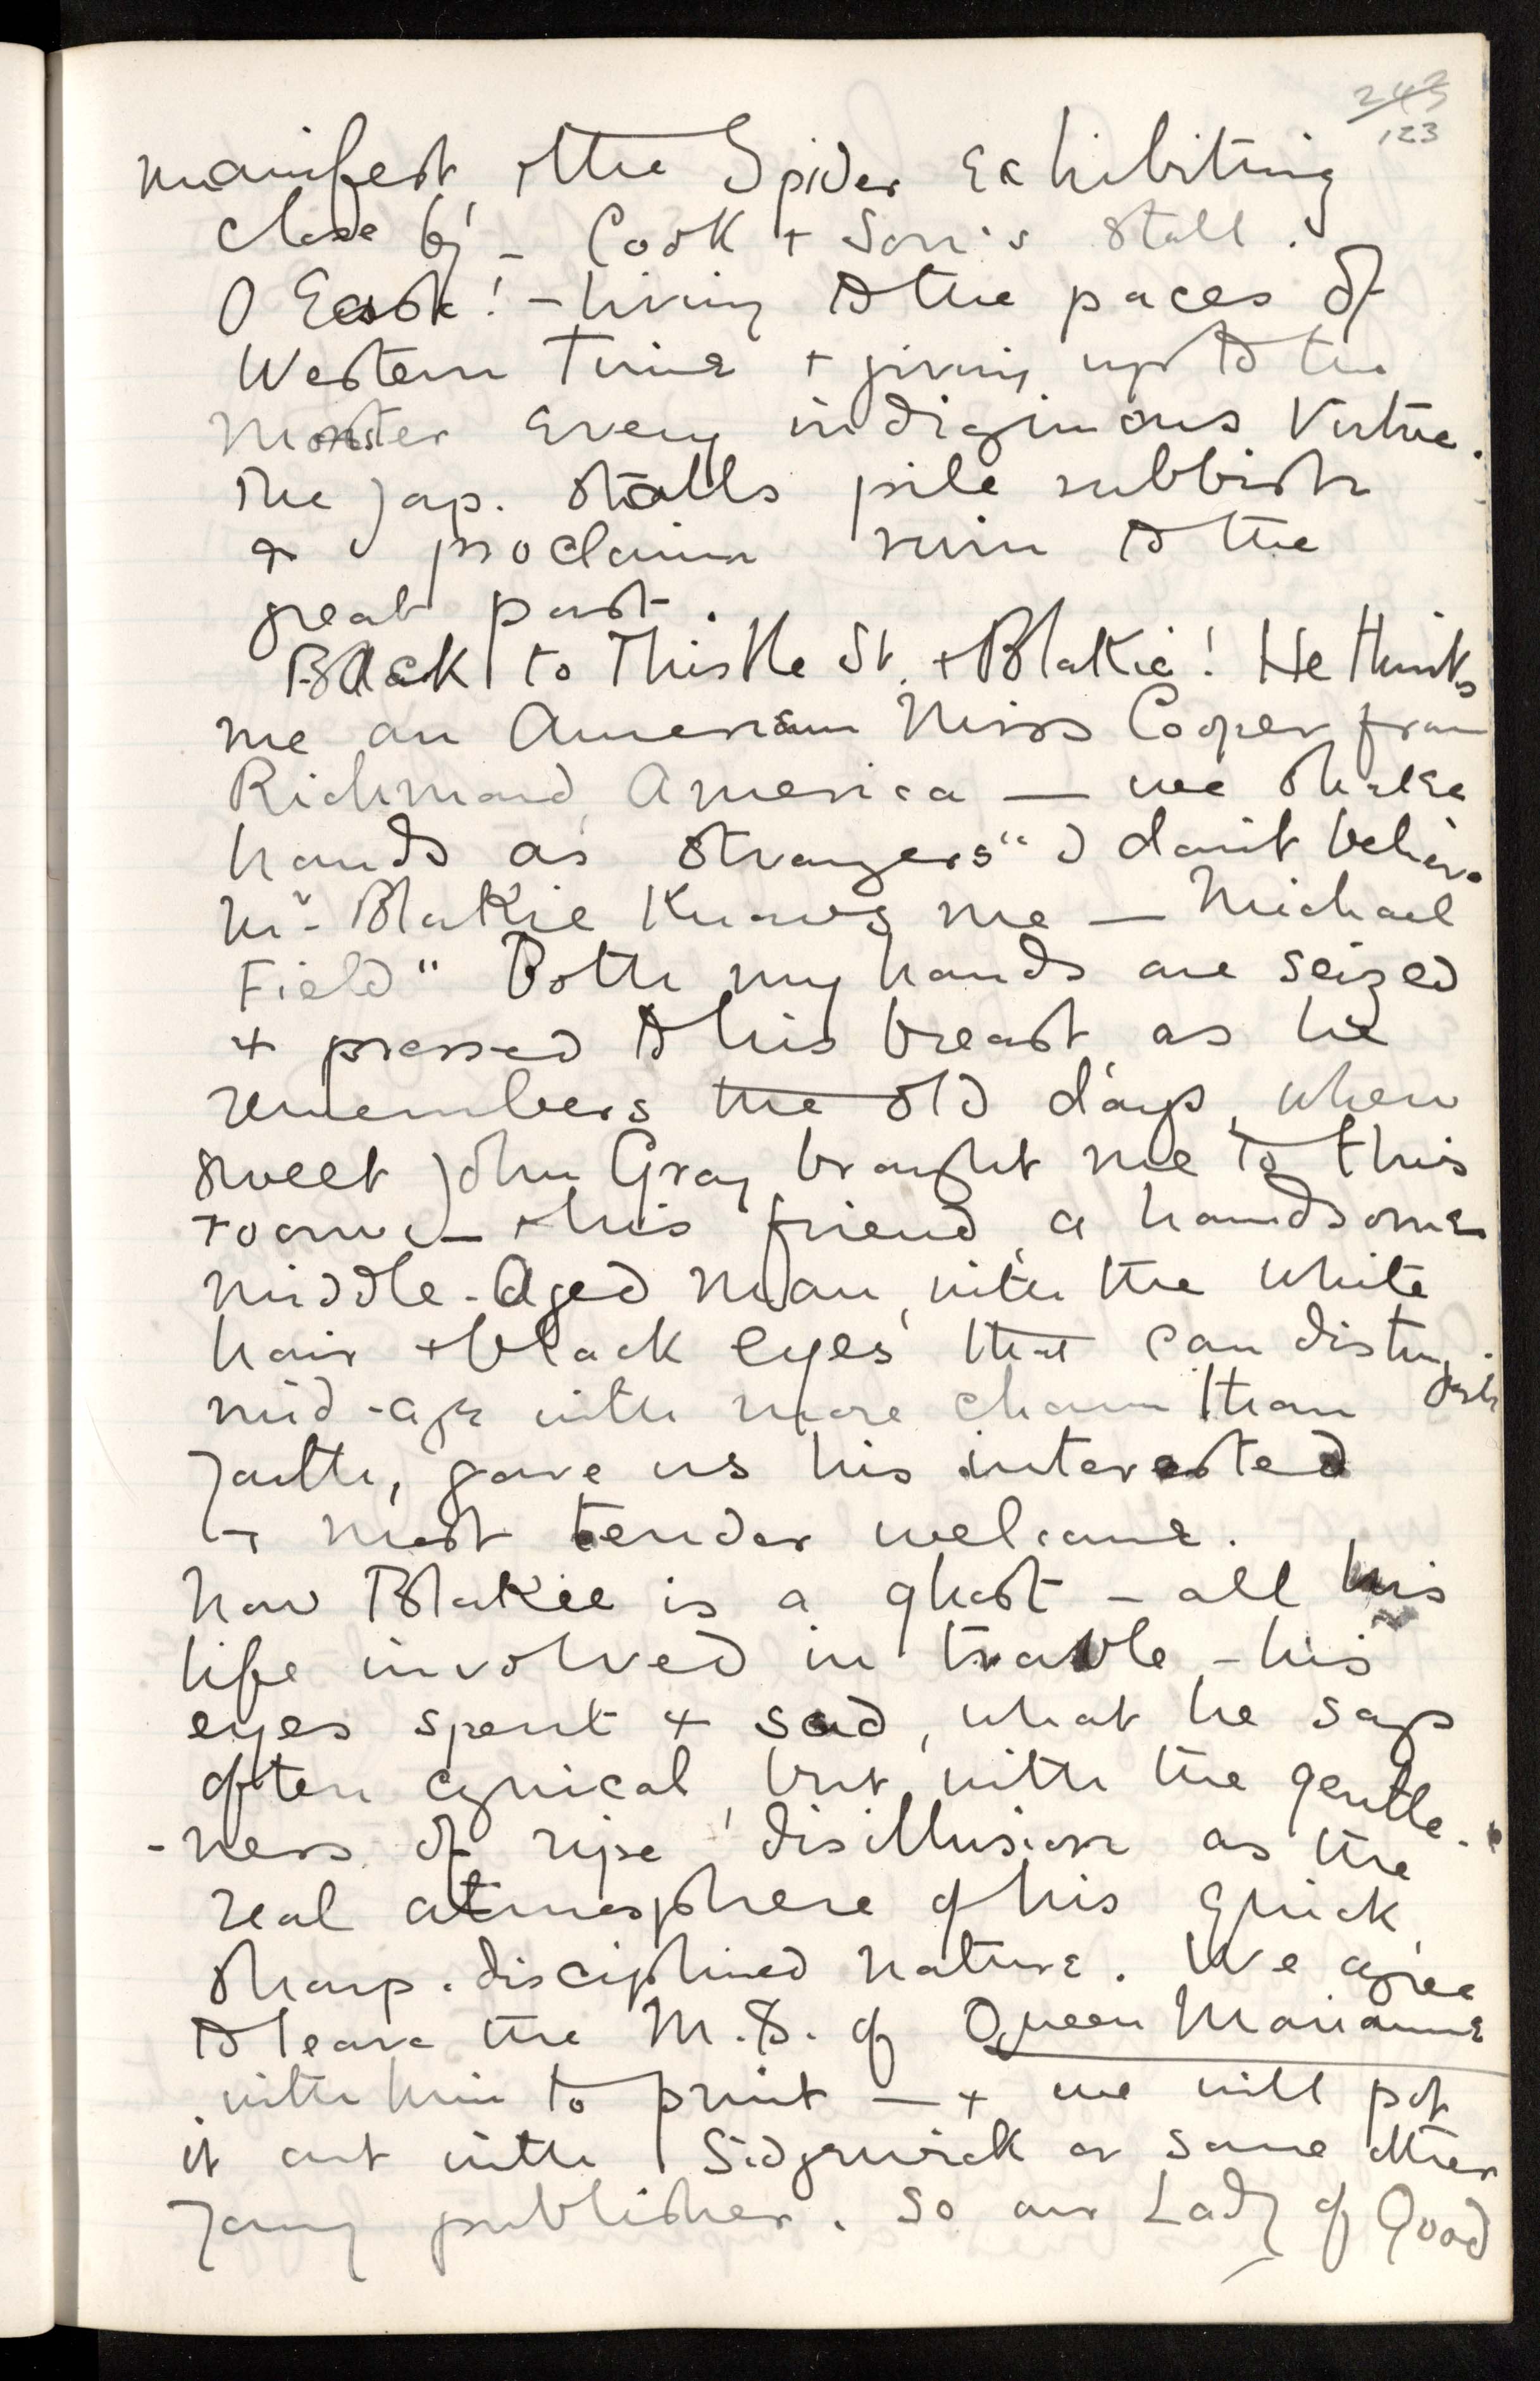 243
123
manifest, + the Spider exhibiting
close by – Cook + Son's stall.
O East! – living to the paces of
Western Time + giving up to the
monster every indiginous Virtue.
The Jap. stalls pile rubbish
+ proclaim ruin to the
great past.
Back to Thistle St. + Blakie! He thinks
me an American Miss Cooper from
Richmond, America — we shake
hands as strangers "I don't believe
Mr. Blakie knows me — Michael
Field" Both my hands are seized
+ pressed to his breast as he
remembers the old days, when
sweet John Gray brought me to this
room – + his friend, a handsome
middle-aged man, with the white
hair + black eyes that can distinguish
mid-age with more charm than
youth, gave us his interested
+ most tender welcome.
Now Blakie is a ghost – all his
life involved in trouble – his
eyes spent + sad, what he says
often cynical, but with the gentle-
-ness of ripe disillusion as the
real atmosphere of his quick,
sharp-disciplined nature. We agree
to leave the M.S. of Queen Mariamne
with him to print — + we will put
it out with Sidgwick or some other
young publisher. So our Lady of Good